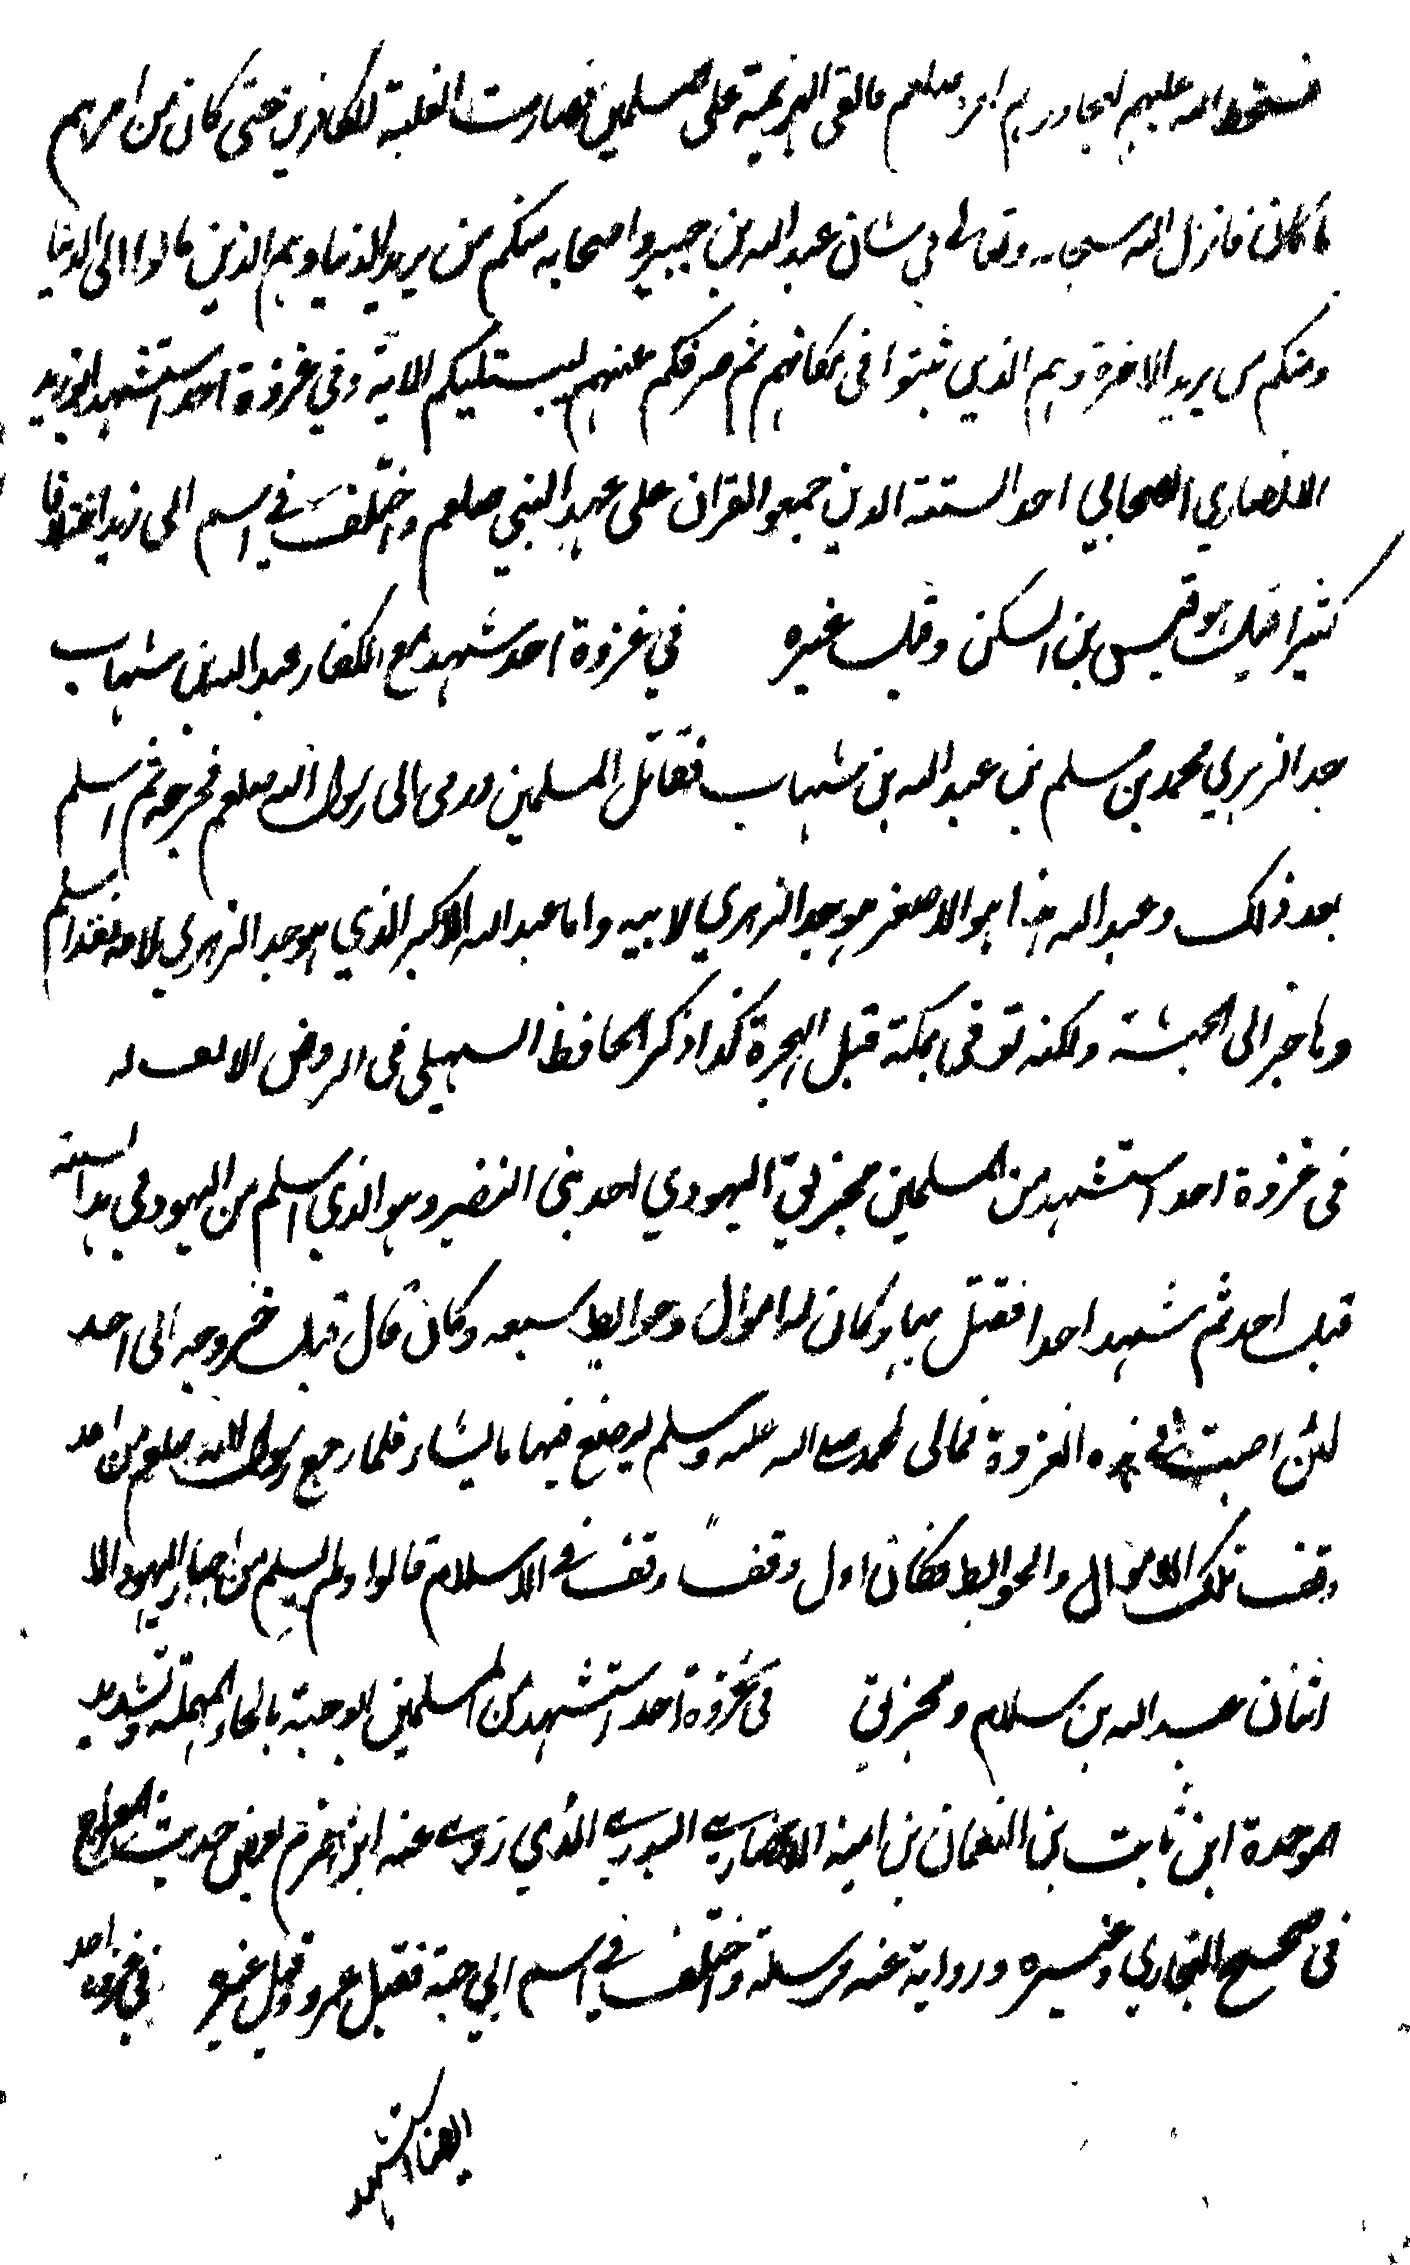 فسخط الله عليهم لمجاوزتهم امره صلعم فالقى الهزيمة على المسلمين فصارت الغلبة للكافرين حتى كان من امرهم
ما كان فانزل الله سبحانه وتعالى في شان عبد الله بن جبير واصحابه منكم من يريد الدنيا وهم الذين مالوا الى الدنيا
ومنكم من يريد الاخرة وهم الذين ثبتوا في مكانهم ثم صرفكم عنهم ليبتليكم الاية وفي غزوة احد استشهد ابو زيد
الانصاري الصحابي احد الستة الذين جمعوا القران على عهد النبي صلعم واختلف في اسم ابي زيد اختلافا
كثيرا فقيل هو قيس بن السكن وقيل غيره في غزوة احد شهد مع الكفار عبد الله بن شهاب
جد الزهري محمد بن مسلم بن عبد الله بن شهاب فقاتل المسلمين ورمى الى رسول الله صلعم فجرحه ثم اسلم
بعد ذلك وعبد الله هذا هو الاصغر هو جد الزهري لابيه واما عبد الله الاكبر الذي هو جد الزهري لامه فقد اسلم
وهاجر الى الحبشة ولكنه توفى بمكة قبل الهجرة كذا ذكر الحافظ السهيلي في الروض الانف له
في غزوة احد استشهد من المسلمين مخيريق اليهودي احد بني النضير وهو الذي اسلم من اليهود في هذا السنة
قبل احد ثم شهد احدا فقتل بها وكان له اموال وحوايط سبعه وكان قال قبل خروجه الى احد
لئن اصبت في هذه الغزوة فمالى لمحمد صلى الله عليه وسلم ليصنع فيها ما يشاء فلما رجع رسول الله صلعم من احد
وقف تلك الاموال والحوايط فكان اول وقف وقف في الاسلام قالوا ولم يسلم من احبار اليهود الا
اثنان عبد الله بن سلام ومخيريق في غزوة احد استشهد من المسلمين ابو حبة بالحاء المهملة وتشديد
موحدة ابن ثابت بن النعمان بن امية الانصاري البدري الذي روى عنه ابن حزم بعض حديث المعراج
في صحيح البخاري وغيره ورواية عنه مرسلة واختلف في اسم ابي حبة فقيل عمرو وقيل غيره في غزوة احد
ايضا استشهد